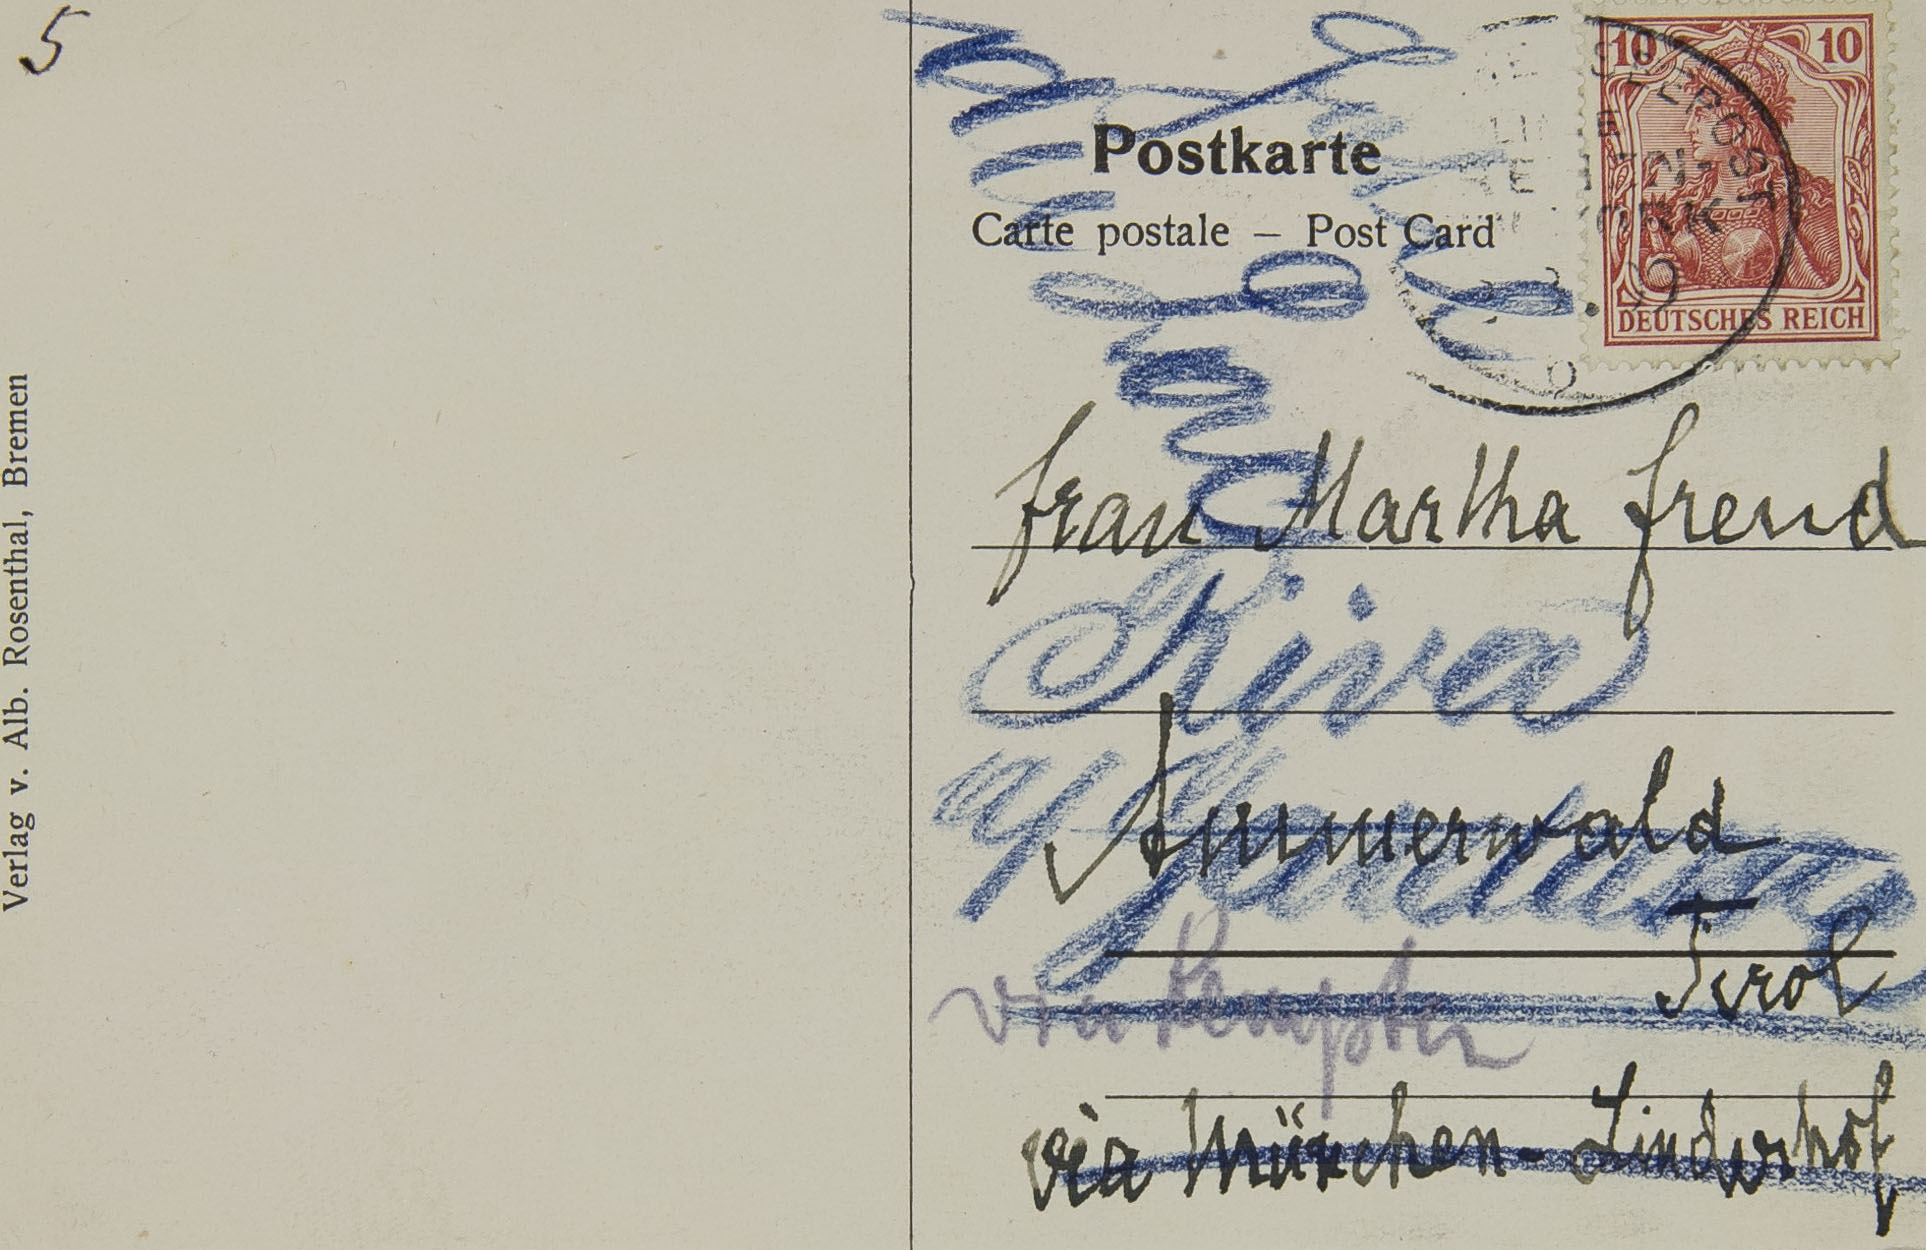 5
Verlag v. Alb. Rosenthal, Bremen
Postkarte
Carte postale – Post Card
10 10
DEUTSCHES REICH
SEEPOST
YORK
Frau Martha Freud
Riva
Ammerwald
Tirol
via Kempten
via München-Linderhof